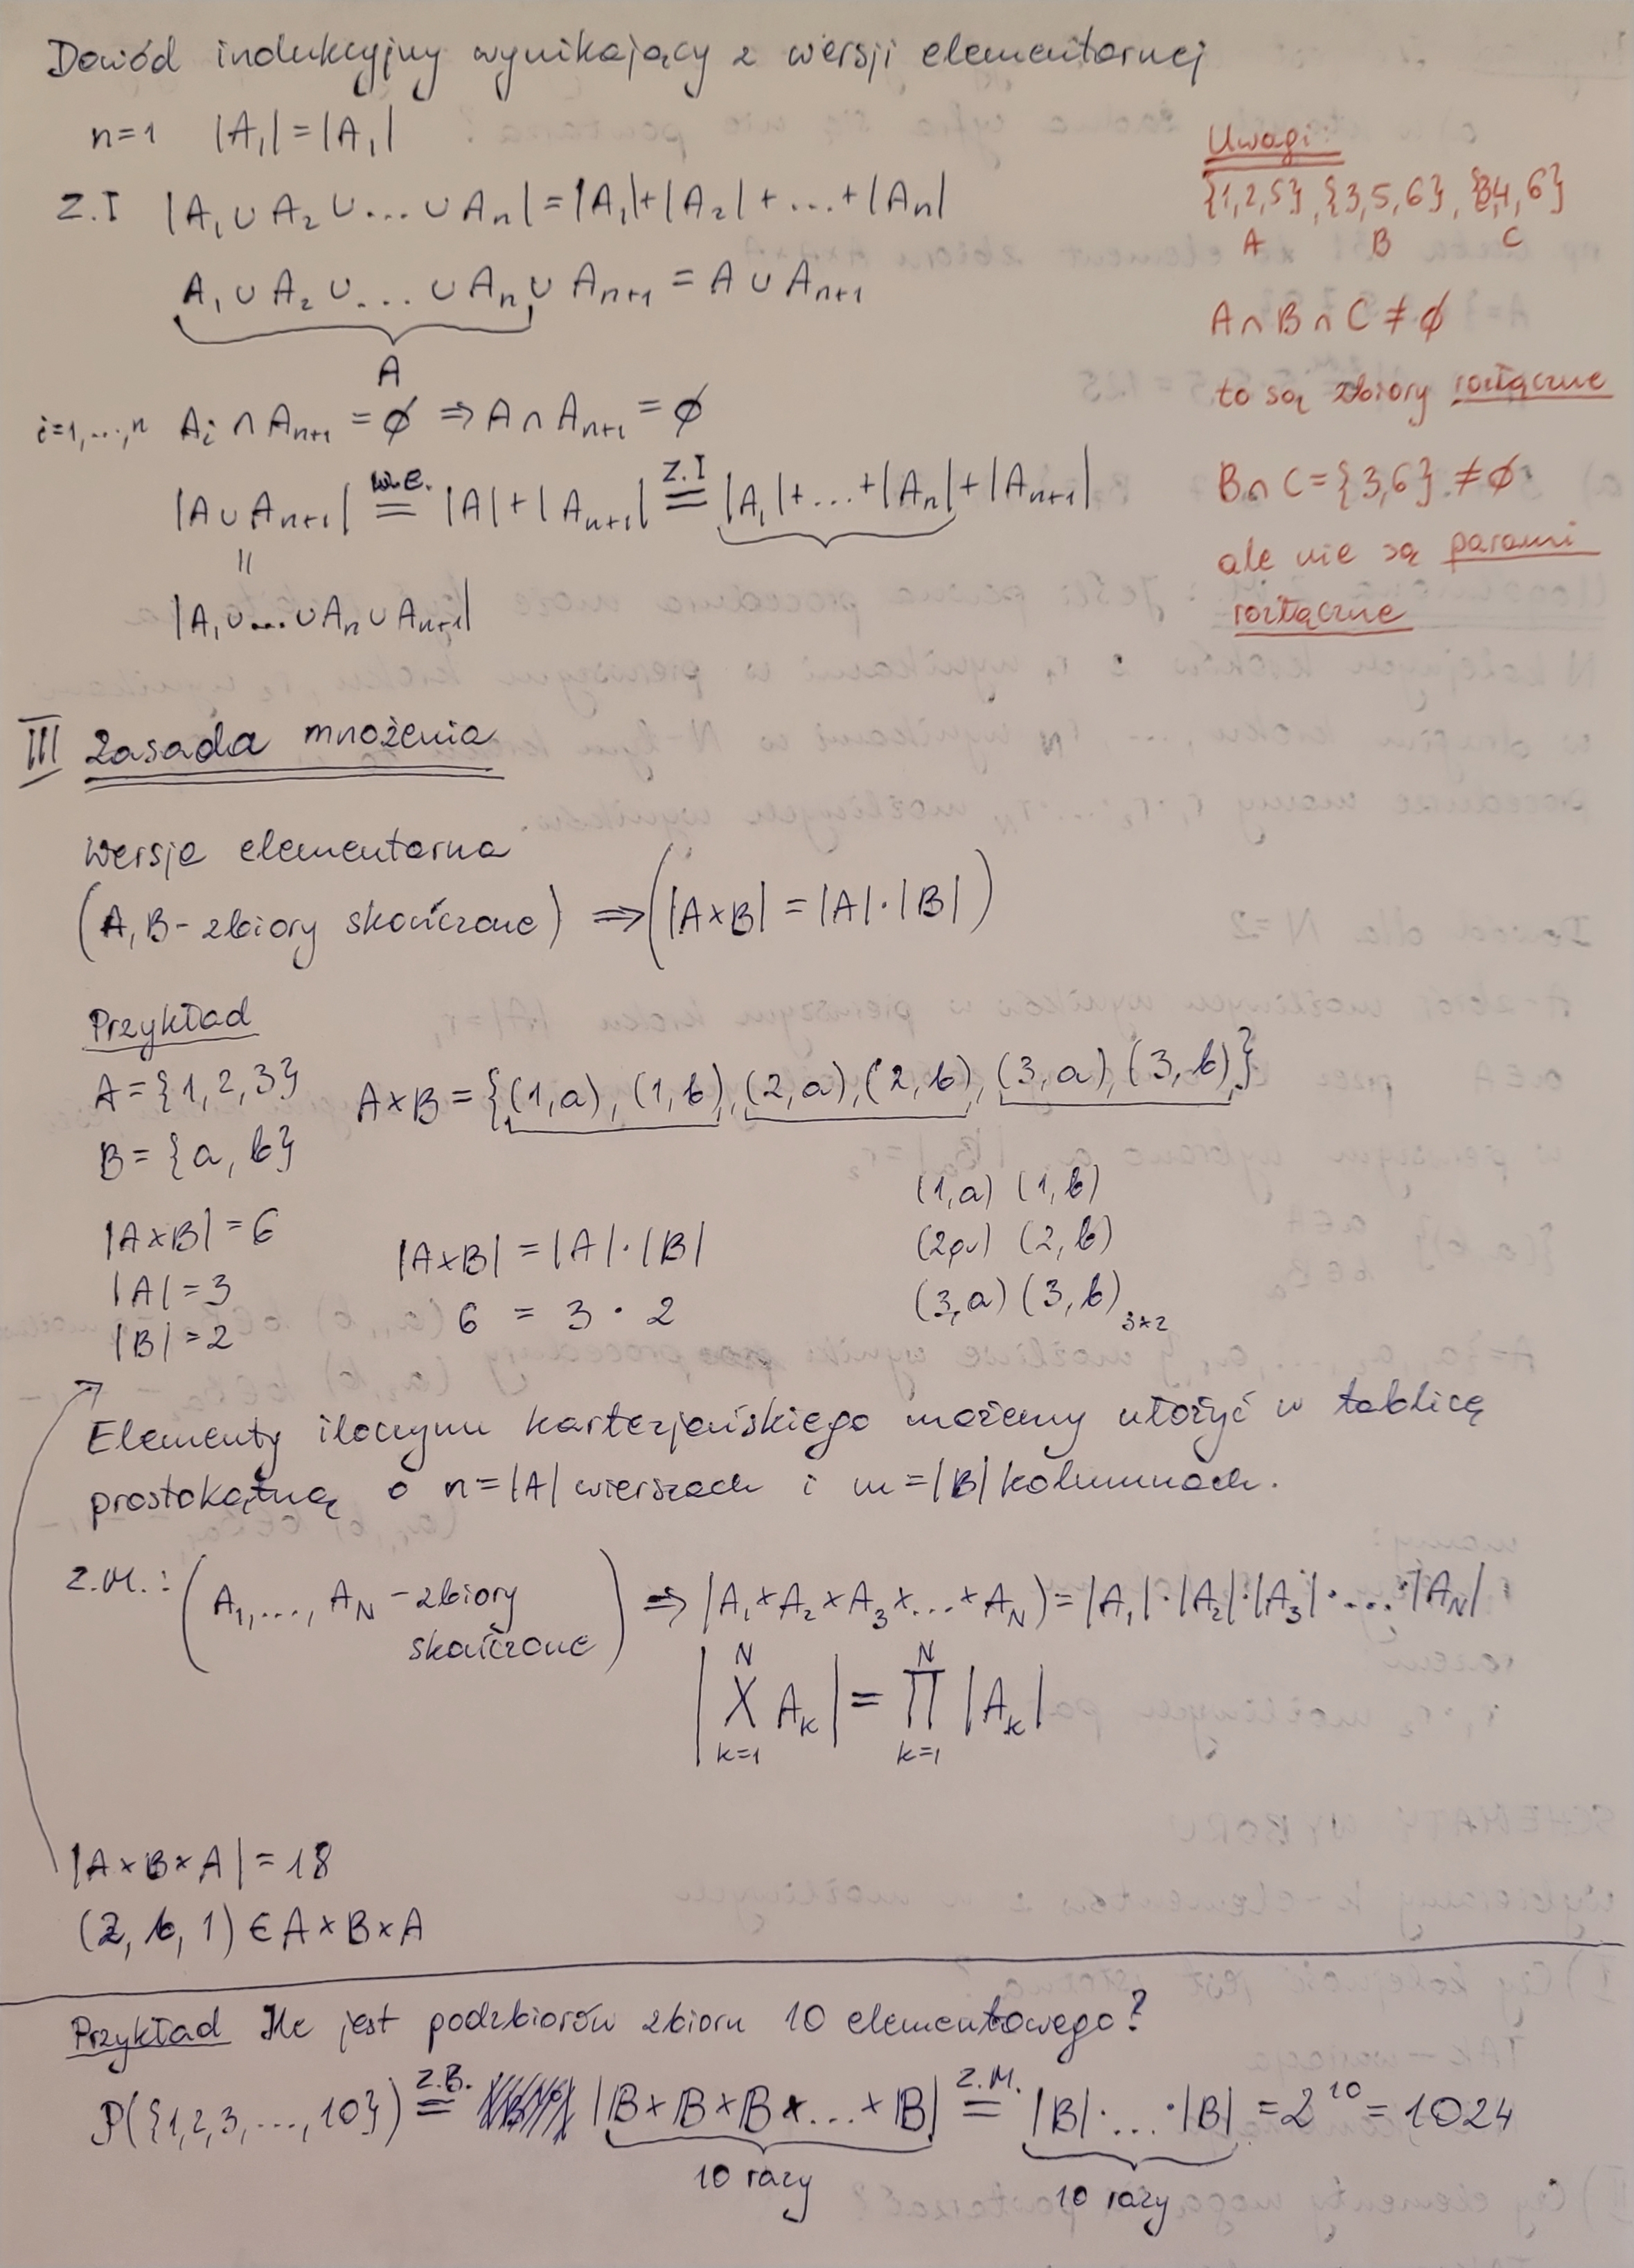 Dowód indukcyjny wynikający z wersji elementarnej
n=1 |A₁|=|A₁|
Z.I |A₁ ∪ A₂ ∪ ... ∪ Aₙ| = |A₁|+|A₂|+...+|Aₙ|
A₁ ∪ A₂ ∪ ... ∪ Aₙ ∪ Aₙ₊₁ = A ∪ Aₙ₊₁
A
i=1,...,n Aᵢ ∩ Aₙ₊₁ = ∅ ⇒ A ∩ Aₙ₊₁ = ∅
|A ∪ Aₙ₊₁| =(w.e.) |A|+|Aₙ₊₁| =(Z.I) |A₁|+...+|Aₙ|+|Aₙ₊₁|
||
|A₁ ∪ ... ∪ Aₙ ∪ Aₙ₊₁|
Uwagi:
{1,2,5}, {3,5,6}, {3,4,6}
A B C
A ∩ B ∩ C ≠ ∅
to są zbiory rozłączne
B ∩ C = {3,6} ≠ ∅
ale nie są parami
rozłączne
III Zasada mnożenia
Wersja elementarna
(A, B - zbiory skończone) ⇒ (|A×B| = |A|·|B|)
Przykład
A = {1,2,3}
B = {a, b}
A×B = {(1,a), (1,b), (2,a), (2,b), (3,a), (3,b)}
|A×B| = 6
|A| = 3
|B| = 2
|A×B| = |A|·|B|
6 = 3 · 2
(1,a) (1,b)
(2,a) (2,b)
(3,a) (3,b) 3×2
Elementy iloczynu kartezjańskiego możemy ułożyć w tablicę
prostokątną o n=|A| wierszach i m=|B| kolumnach.
Z.M.: (A₁,..., A_N - zbiory skończone) ⇒ |A₁×A₂×A₃×...×A_N| = |A₁|·|A₂|·|A₃|·...·|A_N|
|X_{k=1}^{N} A_k| = ∏_{k=1}^{N} |A_k|
|A×B×A| = 18
(2, b, 1) ∈ A×B×A
Przykład Ile jest podzbiorów zbioru 10 elementowego?
P({1,2,3,...,10}) =(Z.B.) |B×B×B×...×B| =(Z.M.) |B|·...·|B| = 2¹⁰ = 1024
10 razy 10 razy